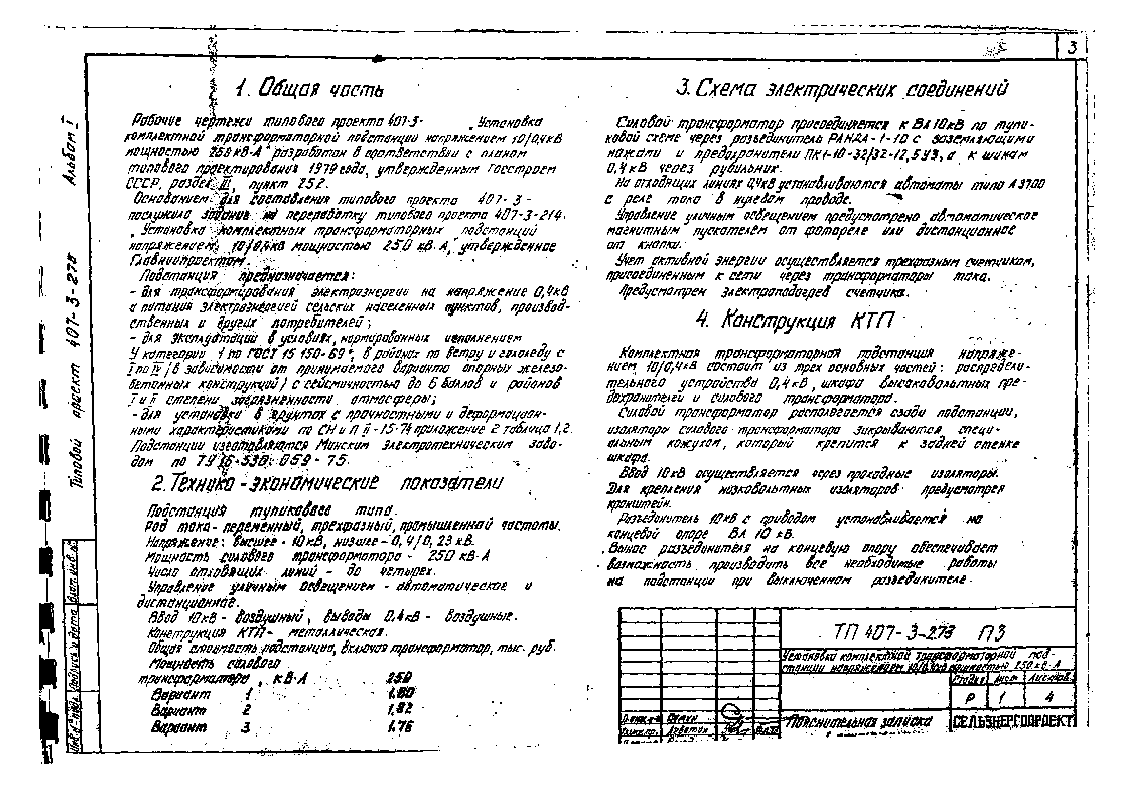 3
Альбом I
Типовой проект 407-3-278
1. Общая часть
Рабочие чертежи типового проекта 407-3- „Установка
комплектной трансформаторной подстанции напряжением 10/0,4кВ
мощностью 250 кВ·А" разработан в соответствии с планом
типового проектирования 1979 года, утвержденным Госстроем
СССР, раздел III, пункт 252.
Основанием для составления типового проекта 407-3-
послужило задание на переработку типового проекта 407-3-214.
„Установка комплектных трансформаторных подстанций
напряжением 10/0,4кВ мощностью 250 кВ·А", утвержденное
Главниипроектом.
Подстанция предназначается:
- для трансформирования электроэнергии на напряжение 0,4кВ
и питания электроэнергией сельских населенных пунктов, производ-
ственных и других потребителей;
- для эксплуатации в условиях, нормированных исполнением
У категории 1 по ГОСТ 15 150-69*, в районах по ветру и гололеду с
I по IV (в зависимости от принимаемого варианта опорных железо-
бетонных конструкций) с сейсмичностью до 6 баллов и районов
I и II степени загрязненности атмосферы;
- для установки в грунтах с прочностными и деформацион-
ными характеристиками по СН и П II-15-74 приложение 2 таблица 1,2.
Подстанции изготовляются Минским электротехническим заво-
дом по ТУ 16-530.059-75.
2. Технико-экономические показатели
Подстанция тупикового типа.
Род тока - переменный, трехфазный, промышленной частоты.
Напряжение: высшее - 10кВ, низшее - 0,4/0,23 кВ.
Мощность силового трансформатора - 250 кВ·А
Число отходящих линий - до четырех.
Управление уличным освещением - автоматическое и
дистанционное.
Ввод 10кВ - воздушный, выводы 0.4кВ - воздушные.
Конструкция КТП - металлическая.
Общая стоимость подстанции, включая трансформатор, тыс. руб.
Мощность силового
трансформатора, кВ·А 250
Вариант 1 1,80
Вариант 2 1,82
Вариант 3 1,76
3. Схема электрических соединений
Силовой трансформатор присоединяется к ВЛ 10кВ по тупи-
ковой схеме через разъединитель РЛНДА-1-10 с заземляющими
ножами и предохранители ПК1-10-32/32-12,5У3, а к шинам
0,4кВ через рубильник.
На отходящих линиях 0,4кВ устанавливаются автоматы типа А3700
с реле тока в нулевом проводе.
Управление уличным освещением предусмотрено автоматическое
магнитным пускателем от фотореле или дистанционное
от кнопки.
Учет активной энергии осуществляется трехфазным счетчиком,
присоединенным к сети через трансформаторы тока.
Предусмотрен электроподогрев счетчика.
4. Конструкция КТП
Комплектная трансформаторная подстанция напряже-
нием 10/0,4кВ состоит из трех основных частей: распредели-
тельного устройства 0,4кВ, шкафа высоковольтных пре-
дохранителей и силового трансформатора.
Силовой трансформатор располагается сзади подстанции,
изоляторы силового трансформатора закрываются специ-
альным кожухом, который крепится к задней стенке
шкафа.
Ввод 10кВ осуществляется через проходные изоляторы.
Для крепления низковольтных изоляторов предусмотрен
кронштейн.
Разъединитель 10кВ с приводом устанавливается на
концевой опоре ВЛ 10 кВ.
Вынос разъединителя на концевую опору обеспечивает
возможность производить все необходимые работы
на подстанции при выключенном разъединителе.
ТП 407-3-278 ПЗ
Установка комплектной трансформаторной под-
станции напряжением 10/0,4кВ мощностью 250 кВ·А
Стадия Лист Листов
Р 1 4
Пояснительная записка
СЕЛЬЭНЕРГОПРОЕКТ
Инв. № подл.
Подпись и дата
Взам. инв. №